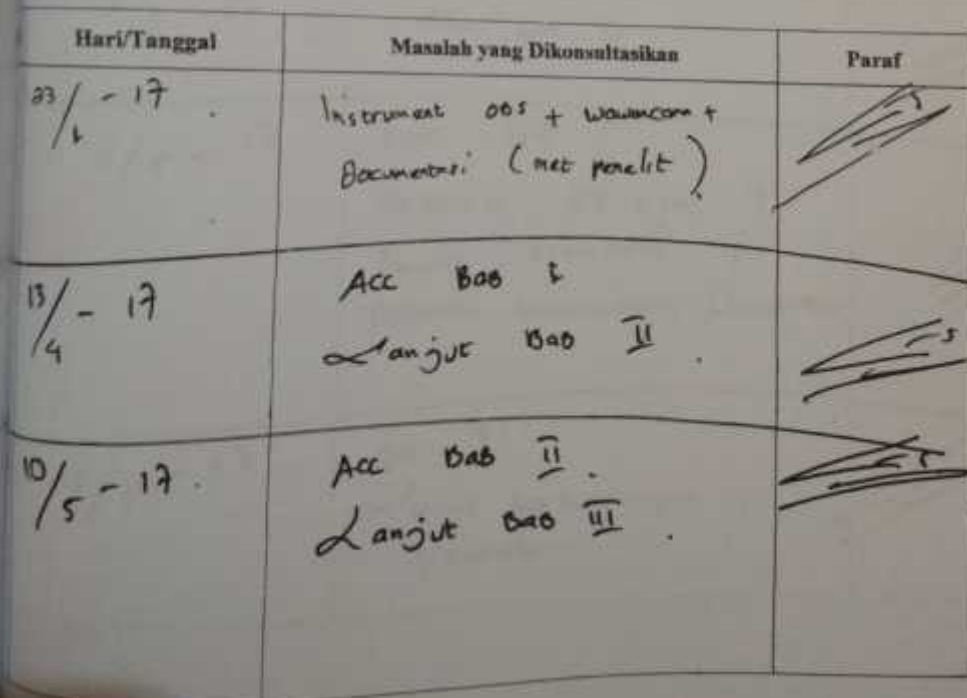 Hari/Tanggal Masalah yang Dikonsultasikan Paraf
23/1 - 17 . Instrument obs + wawancara +
Documentasi (met penelit) .
13/4 - 17 Acc Bab I
Lanjut Bab II .
10/5 - 17 . Acc Bab II .
Lanjut Bab III .